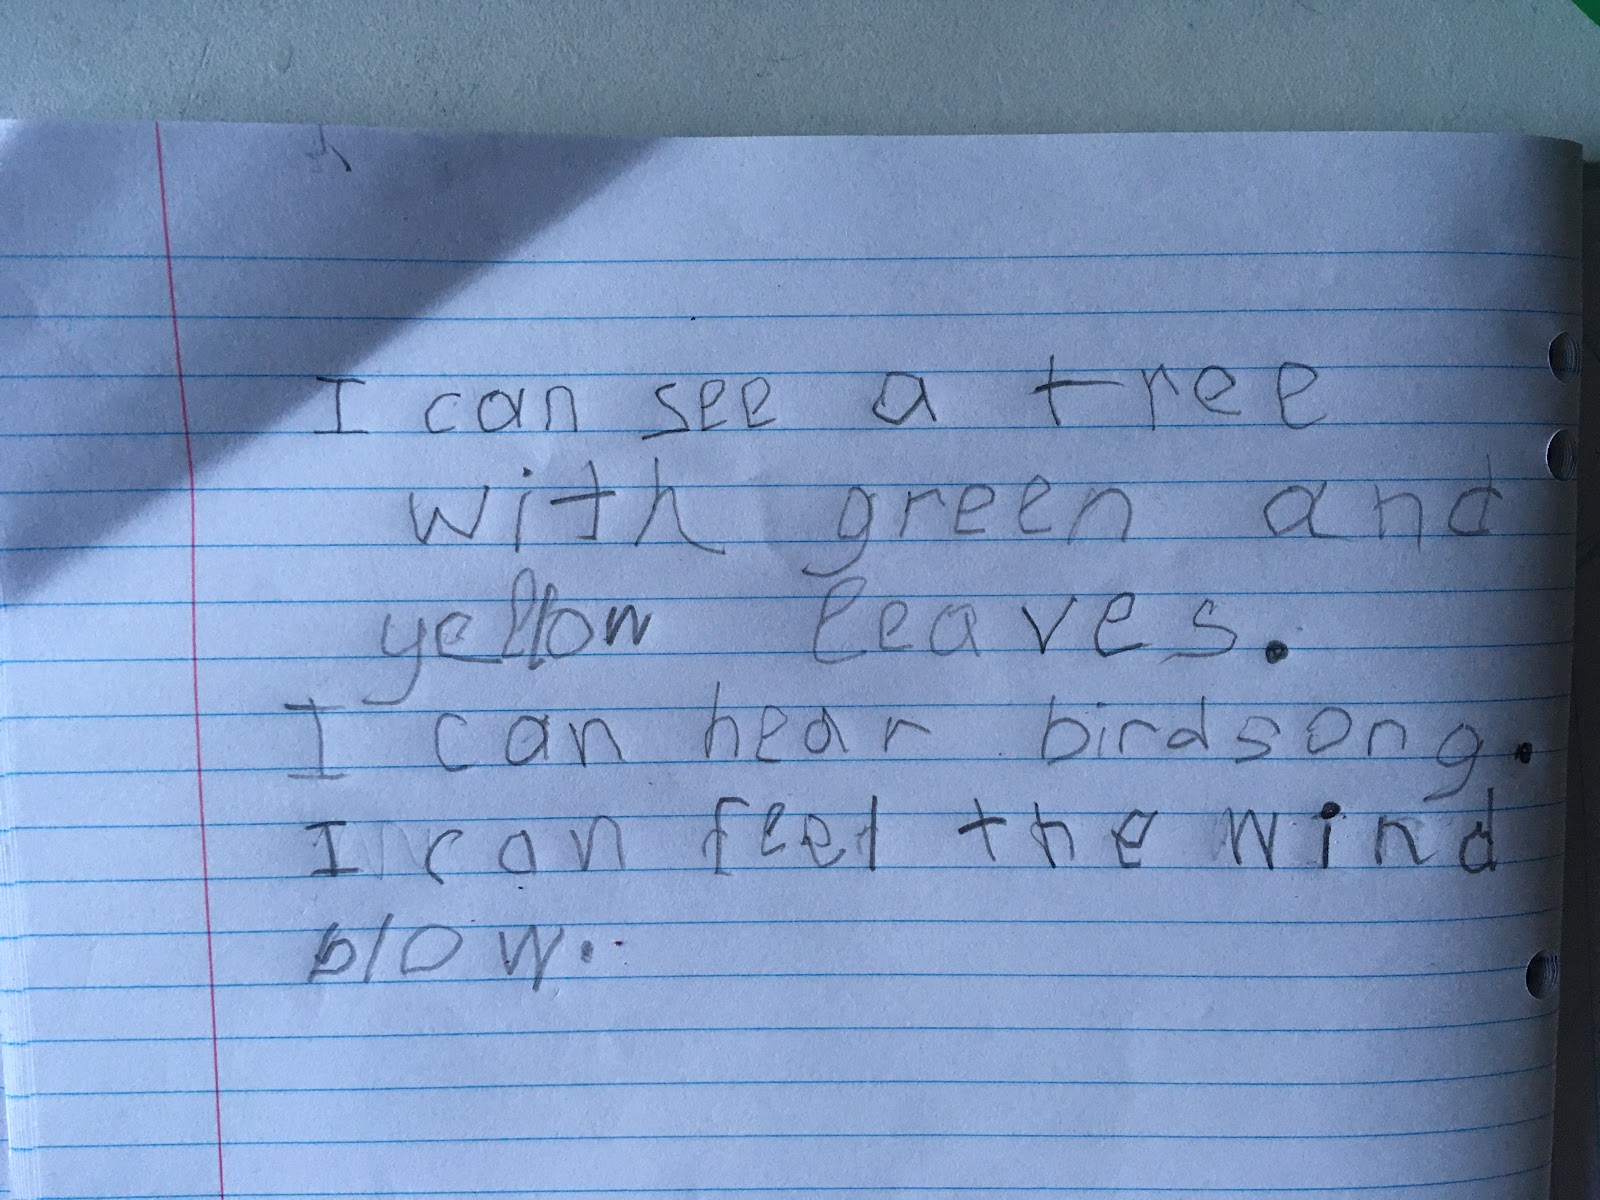 I can see a tree
with green and
yellow leaves.
I can hear birdsong.
I can feel the wind
blow.